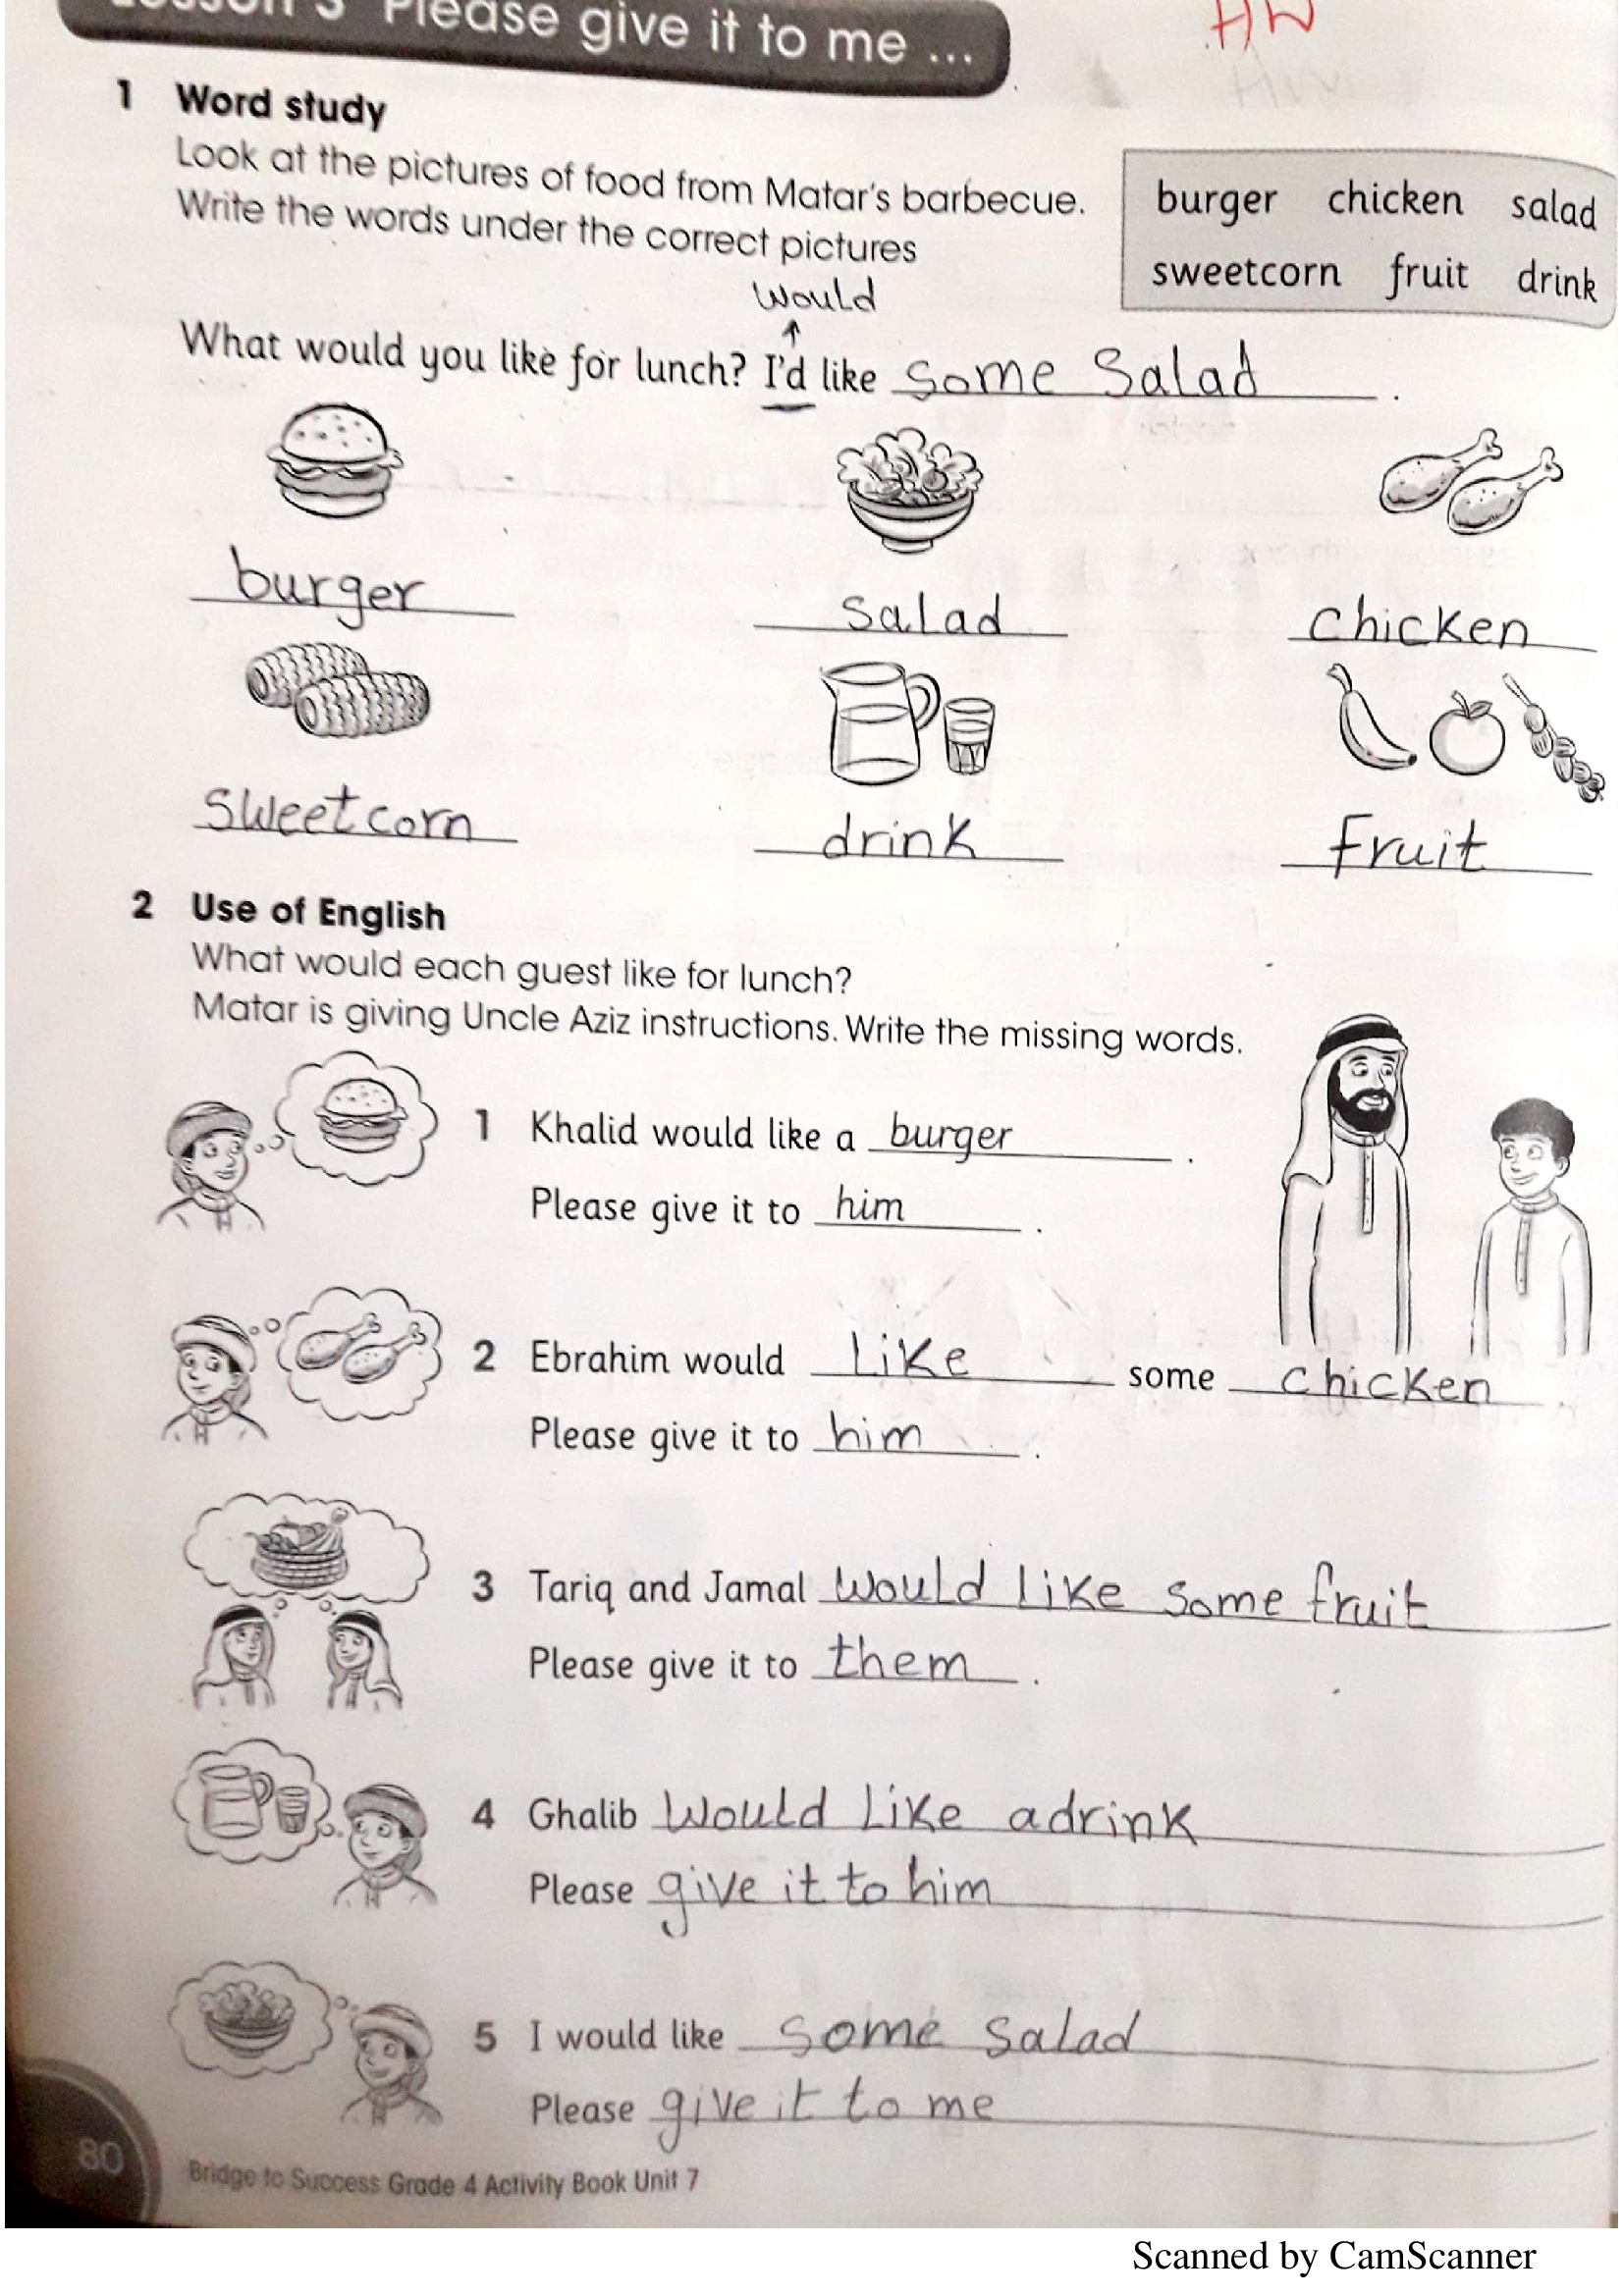 Lesson 3 Please give it to me ...
HW
1 Word study
Look at the pictures of food from Matar's barbecue.
Write the words under the correct pictures
burger chicken salad
sweetcorn fruit drink
would
What would you like for lunch? I'd like some Salad .
burger salad chicken
sweetcorn drink fruit
2 Use of English
What would each guest like for lunch?
Matar is giving Uncle Aziz instructions. Write the missing words.
1 Khalid would like a burger .
Please give it to him .
2 Ebrahim would like some chicken .
Please give it to him .
3 Tariq and Jamal would like some fruit
Please give it to them .
4 Ghalib would like adrink
Please give it to him
5 I would like some salad
Please give it to me
80
Bridge to Success Grade 4 Activity Book Unit 7
Scanned by CamScanner